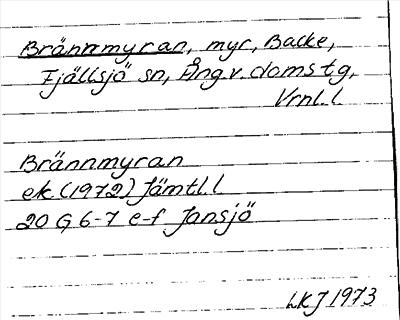 Brännmyran, myr, Backe,
Fjällsjö sn, Ång.v. domstg,
Vrnl.l.
Brännmyran
ek (1972) Jämtl.l
20 G, 6-7 e-f Jansjö
LKJ 1973